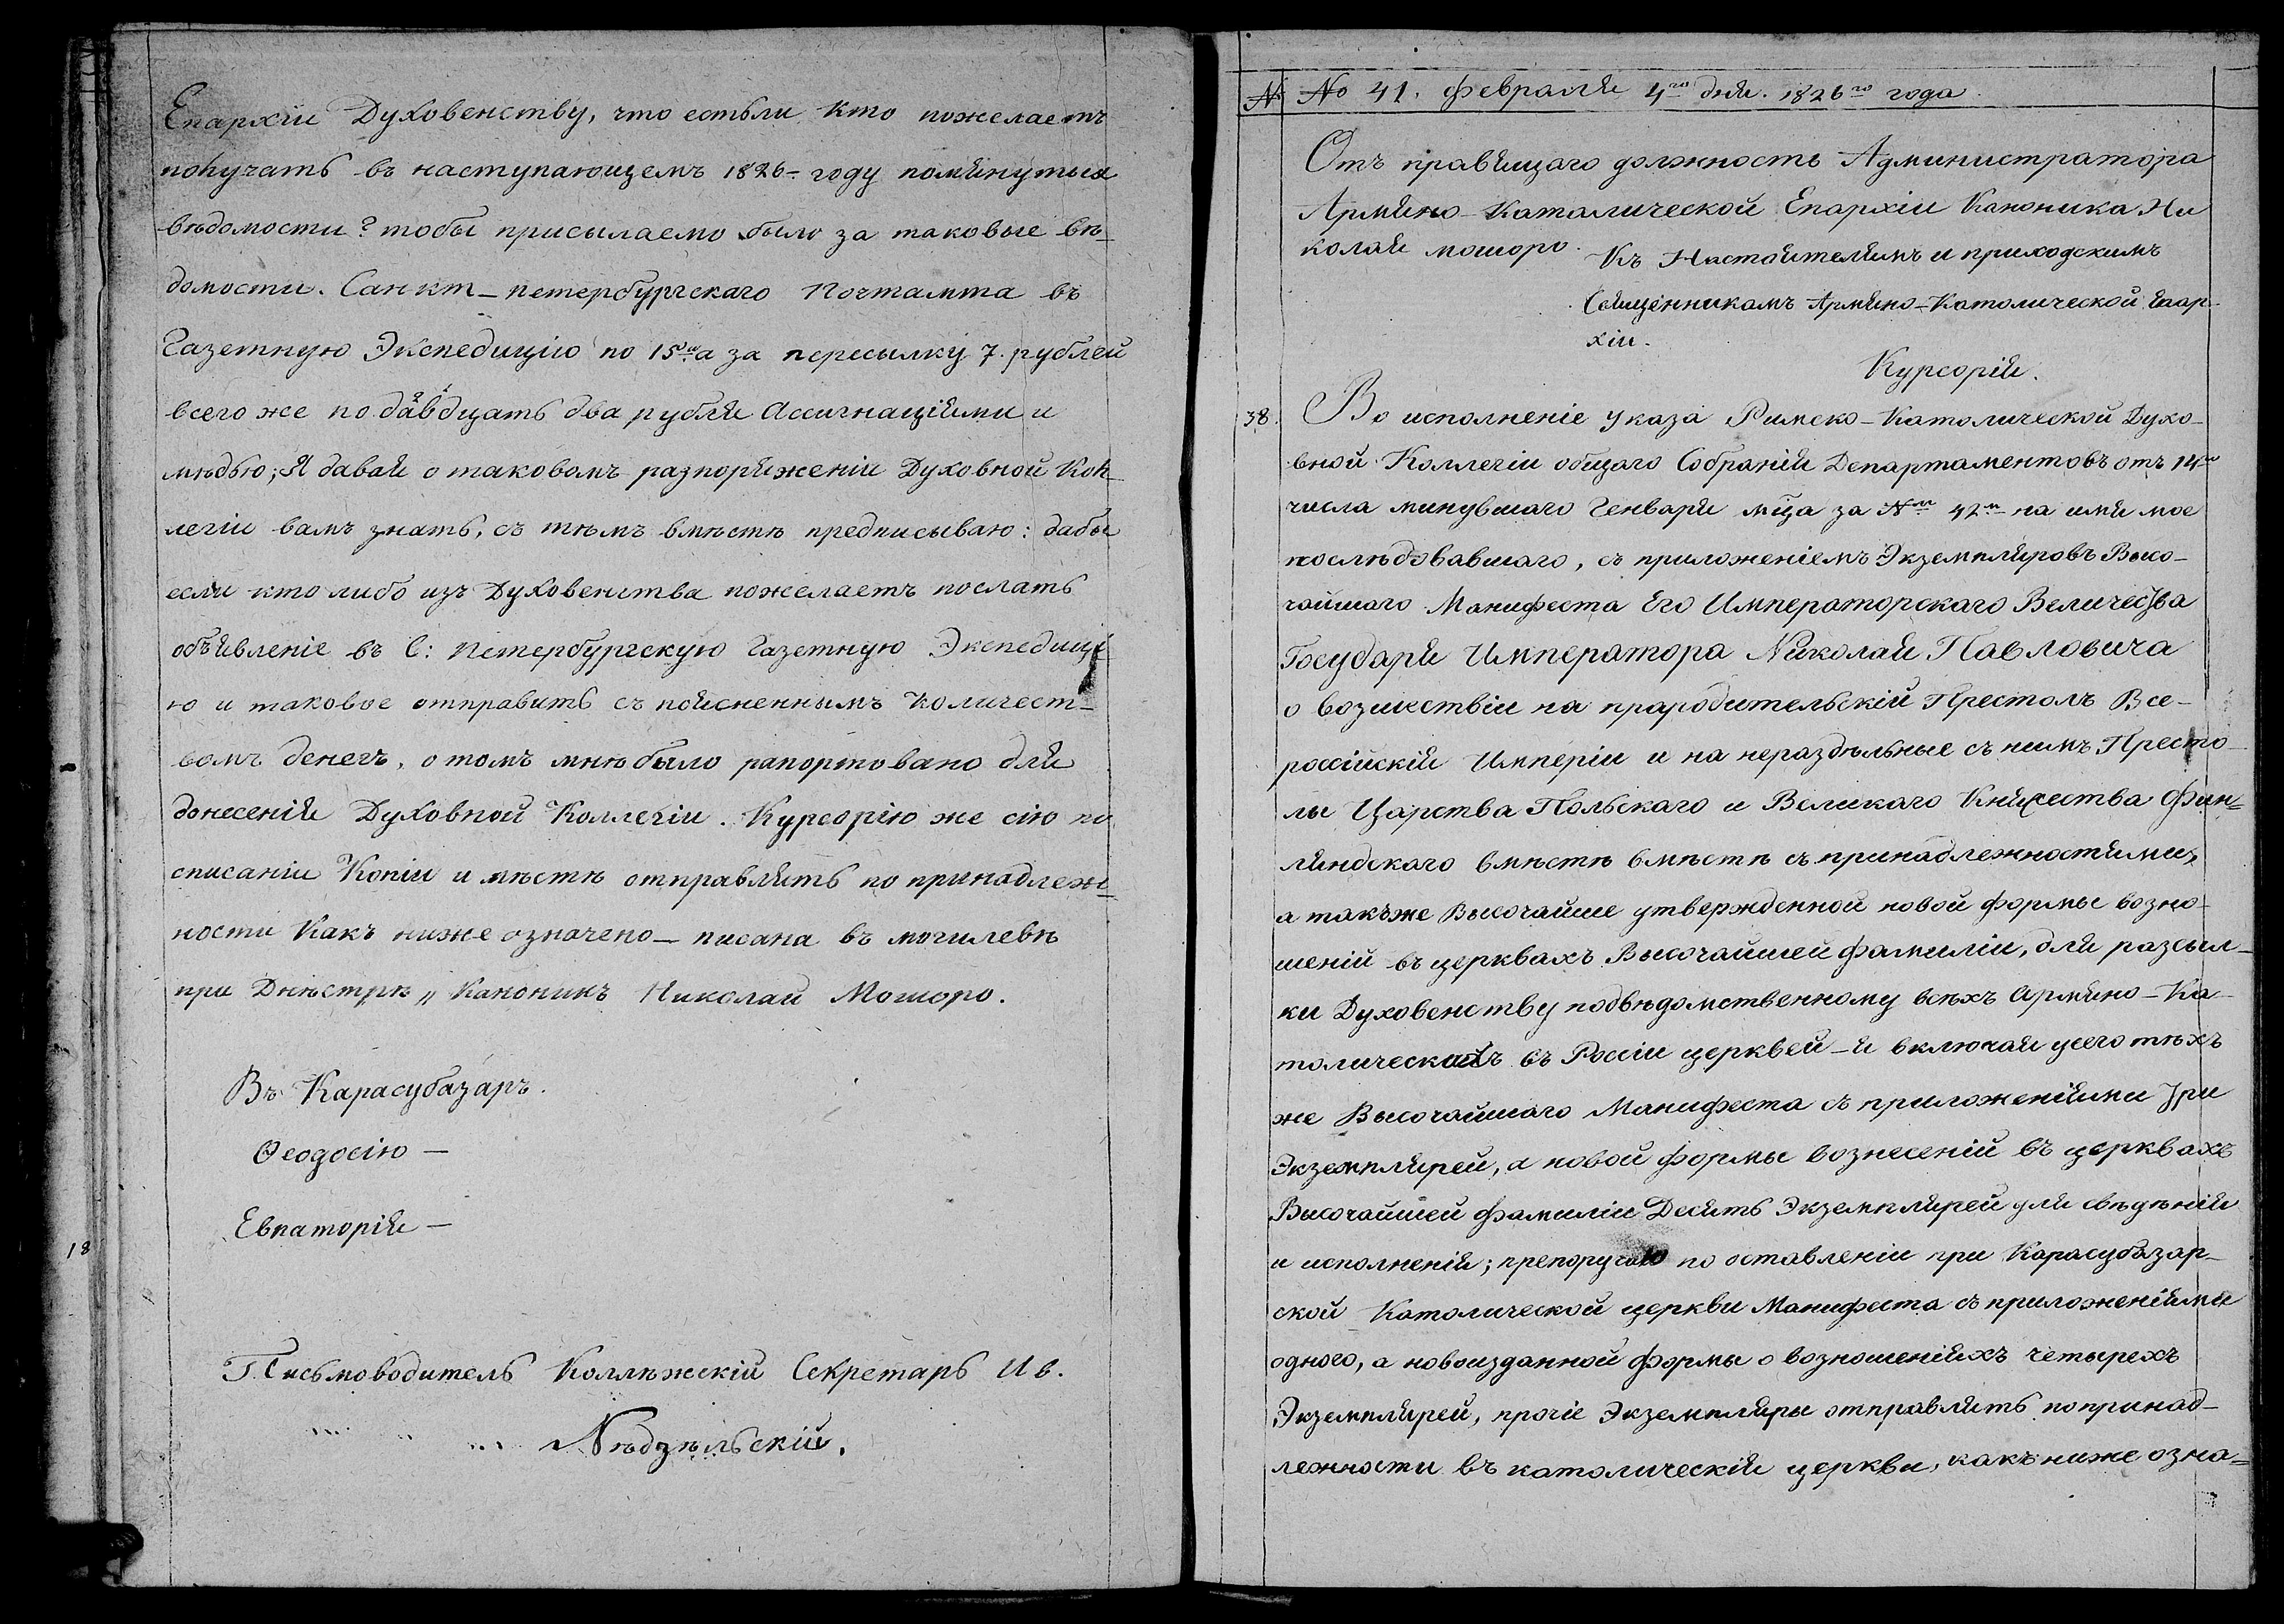 Епархіи Духовенству, что естьли кто пожелаетъ
получать въ наступающемъ 1826- году помянутыя
вѣдомости? тобы присылаемо было за таковые вѣ-
домости. Санкт-петербургскаго Почтамта въ
Газетную Экспедицію по 15 а за пересылку 7. рублей
всего же по двадцать два рубля Ассигнаціями и
мѣдью; Я давая о таковомъ разпоряженіи Духовной Кол-
легіи вамъ знать, съ тѣмъ вмѣстѣ предписываю: дабы
если кто либо изъ Духовенства пожелаетъ послать
объявленіе въ С: Петербургскую Газетную Экспедиці
ю и таковое отправить съ поясненнымъ количест-
вомъ денегъ, о томъ мнѣ было рапортовано для
донесенія Духовной Коллегіи. Курсорію же сію по
списаніи Копіи и мѣстѣ отправлять по принадлеж-
ности Какъ ниже означено- писана въ могилевѣ
при Днѣстрѣ „ Каноникъ Николай Мошоро.
Въ Карасубазаръ.
Ѳеодосію —
Евпаторія —
18
Письмоводитель Коллѣжскій Секретарь Ив.
Nѣдзѣльскій.
№ No 41. февраля 4го дня. 1826го года.
Отъ правящаго должность Администратора
Армяно-Католической Епархіи Каноника Ни
колая мошоро.
Къ Настоятелямъ и приходскимъ
Священникамъ Армяно-Католической Епар-
хіи.
Курсорія.
38. Во исполненіе указа Римско-Католической Духо-
вной Коллегіи общаго Собранія Департаментовъ отъ 14го
числа минувшаго Генваря мца за №м 42м на имя мое
послѣдовавшаго, съ приложеніемъ Экземпляровъ Высо-
чайшаго Манифеста Его Императорскаго Величества
Государя Императора Николая Павловича
о возшествіи на прародительскій Престолъ Все-
россійскія Имперіи и на нераздѣльные съ нимъ Престо-
лы Царства Польскаго и Великаго Княжества Фин-
ляндскаго вмѣстѣ вмѣстѣ съ принадлежностями,
а такъже Высочайше утвержденной новой формы возно-
шеній въ церквахъ Высочайшей фамиліи, для разсыл-
ки Духовенству подвѣдомственному всѣхъ Армяно-Ка-
толическихъ въ Россіи церквей-я включая у сего тѣхъ
же Высочайшаго Манифеста съ приложеніями три
Экземплярей, а новой формы вознесеній въ церквахъ
Высочайшей фамиліи Десять Экземплярей для свѣдѣнія
и исполненія; препоручаю по оставленіи при Карасубазар-
ской Католической церкви Манифеста съ приложеніями
одного, а новоизданной формы о возношеніяхъ четырехъ
Экземплярей, прочіе Экземпляры отправлять по принад-
лежности въ католическія церкви, какъ ниже озна=